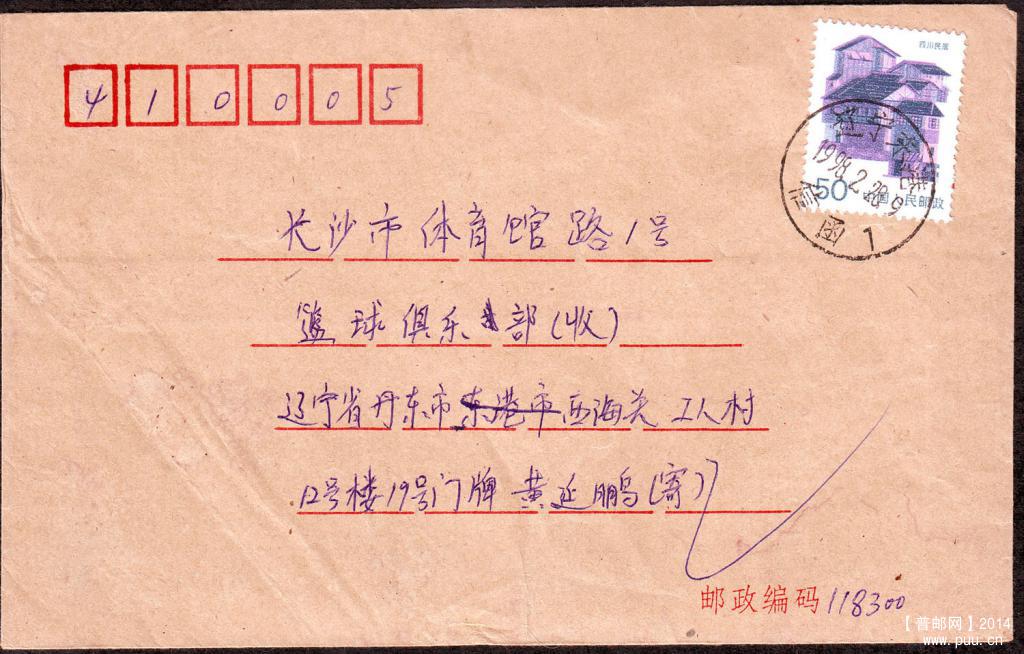 410005
四川民居
50 中国人民邮政
辽宁
1998.2.28.9
函 1
长沙市体育馆路1号
篮球俱乐部(收)
辽宁省丹东市东港市西海关工人村
12号楼19号门牌 黄延鹏(寄)
邮政编码118300
【普邮网】2014
www.puu.cn